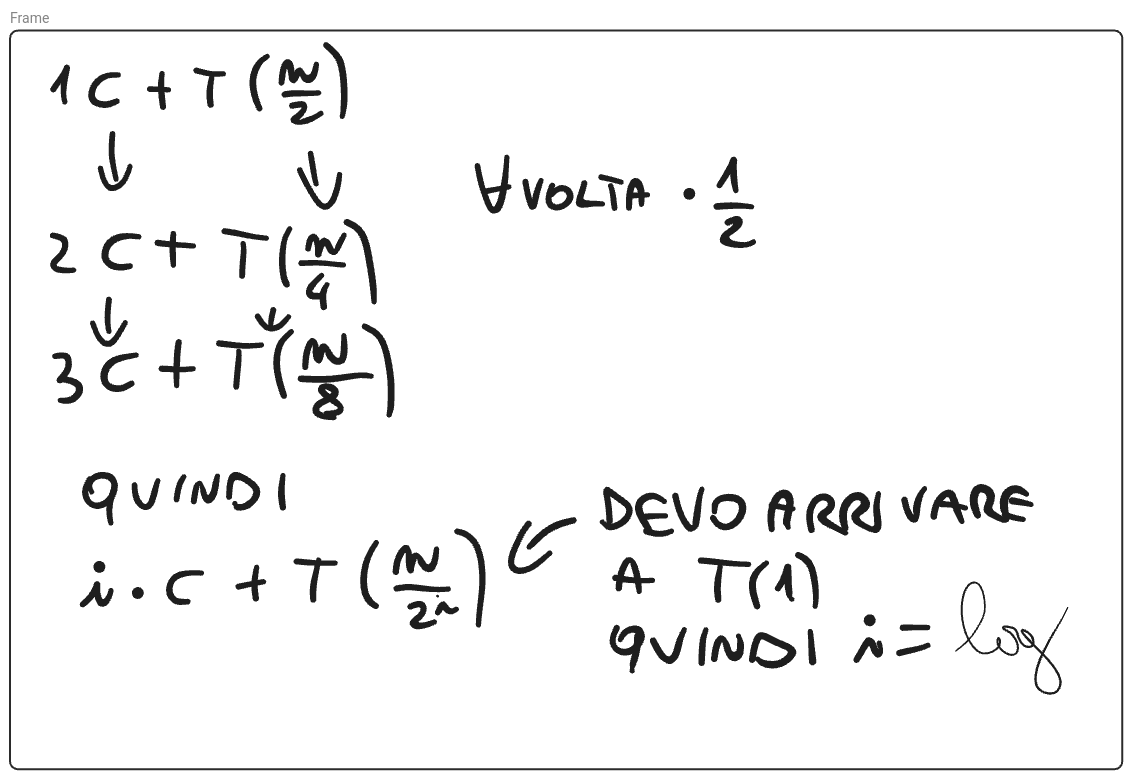 Frame
1 C + T (n/2)
↓ ↓
2 C + T (n/4)
∀ VOLTA · 1/2
↓ ↓
3 C + T (n/8)
QUINDI
i · C + T (n/2^i)
DEVO ARRIVARE
A T(1)
QUINDI i = log